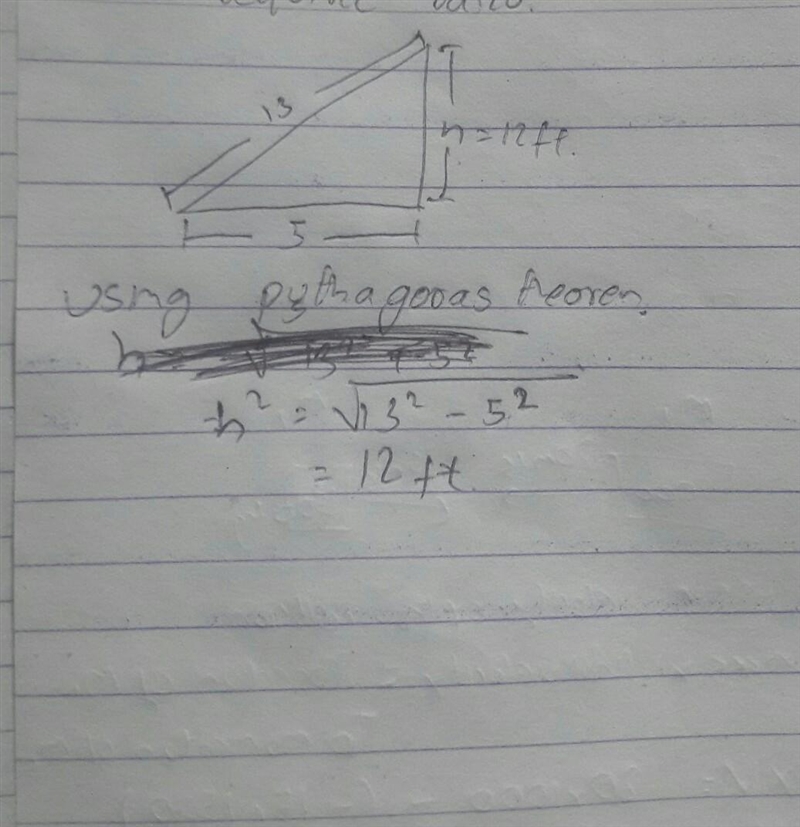 13
h = 12 ft.
5
Using pythagoras theorem.
h² = √13² - 5²
= 12 ft